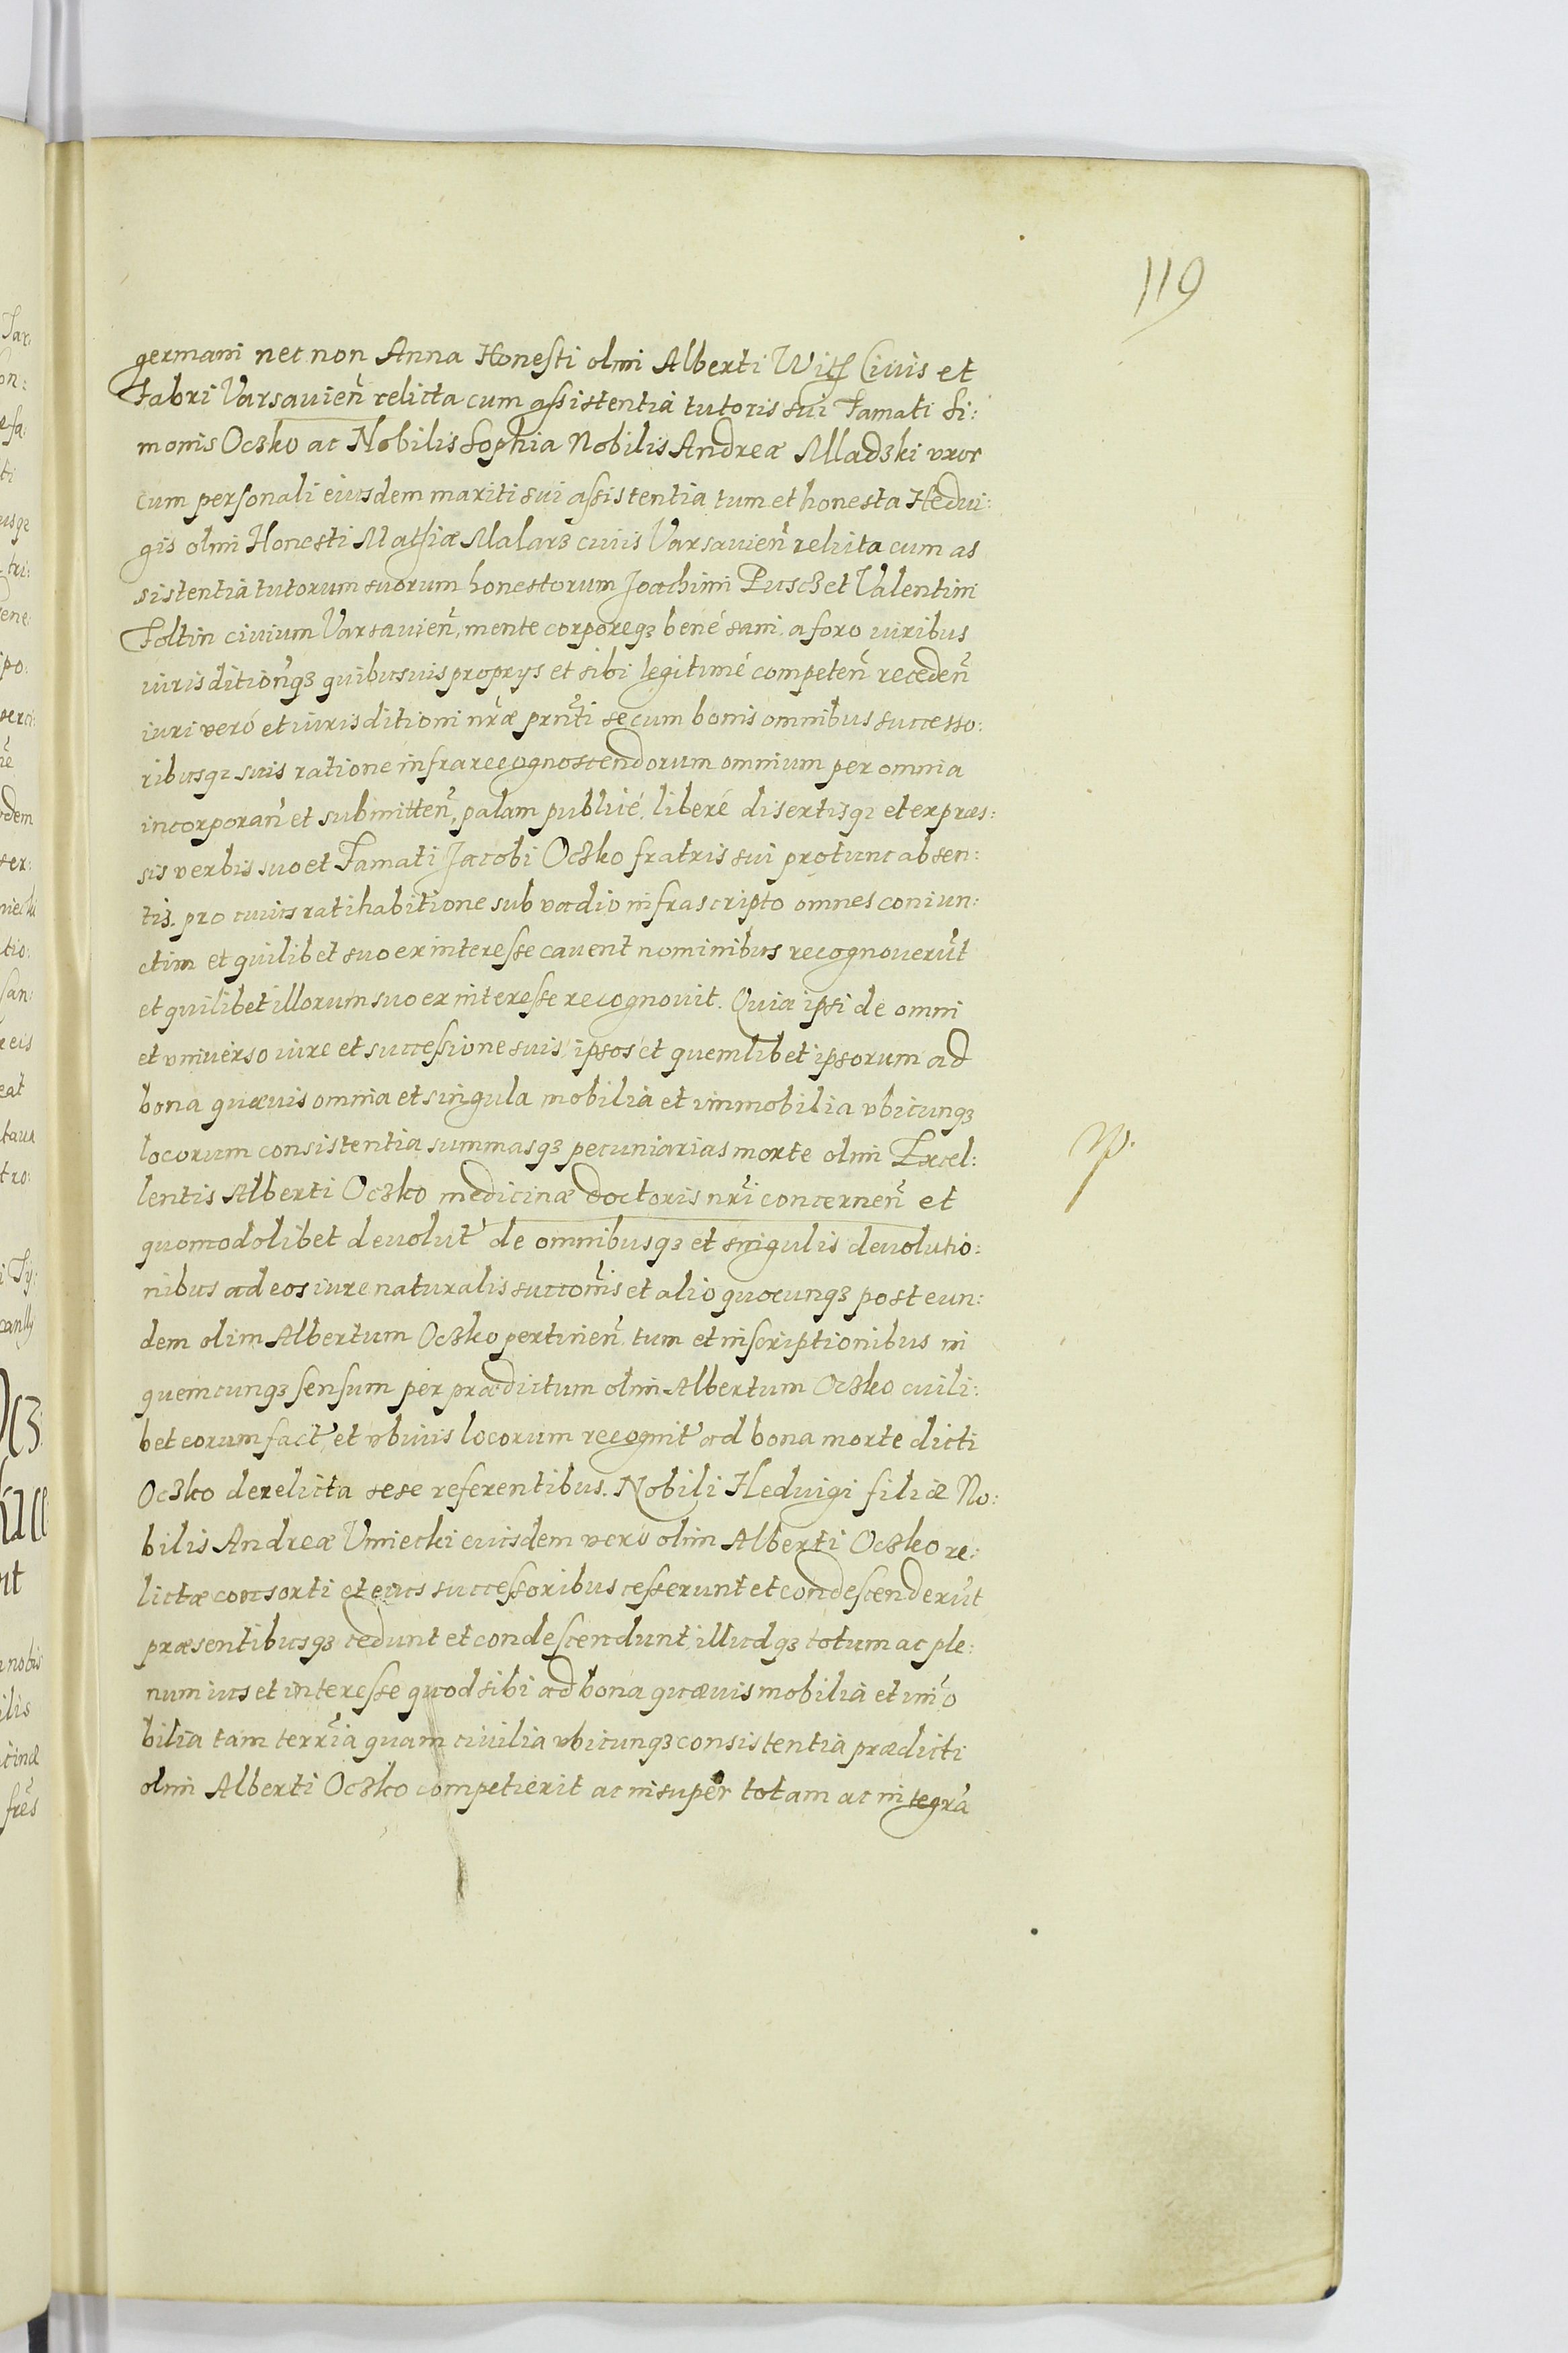 119
germani nec non Anna Honesti olim Alberti Civis et
Fabri Varsavien̄ relicta cum assistentia tutoris sui Famati Si:
monis Oczko ac Nobilis Sophia Nobilis Andreæ Mladzki uxor
cum personali eiusdem mariti sui assistentia tum et honesta Hedui:
gis olim Honesti Mathiæ Malarz civis Varsavien̄ relicta cum as
sistentia tutorum suorum honestorum Joachimi Pusch et Valentini
Foltin civium Varsavien̄, mente corporeqȝ bené sani, a foro iuribus
iurisdition̄qȝ quibusuis proprijs et sibi legitimé competen̄ receden̄
iuri veró et iurisditioni nr̄æ prn̄ti se cum bonis omnibus successo:
ribusqȝ suis ratione infra recognoscendorum omnium per omnia
incorporan̄ et submitten̄, palam publicé, liberé disertisqȝ et expræs:
sis verbis suo et Famati Jacobi Oczko fratris sui protunc absen:
tis. pro cuius ratihabitione sub vadio infrascripto omnes coniun:
ctim et quilibet suo ex interesse cavent nominibus recognoverūt
et quilibet illorum suo ex interesse recognovit. Quia ipsi de omni
et universo iure et successione suis, ipsos et quemlibet ipsorum ad
bona quævis omnia et singula mobilia et immobilia ubicunqȝ
locorum consistentia summasqȝ pecuniarias morte olim Excel:
lentis Alberti Oczko medicinæ doctoris nr̄i concernen̄ et
quomodolibet devolut̄ de omnibusqȝ et singulis devolutio:
nibus ad eos iure naturalis succōnis et alio quocunqȝ post eun:
dem olim Albertum Oczko pertinen̄. tum et inscriptionibus in
quemcunqȝ sensum per prædictum olim Albertum Oczko cuili:
bet eorum fact̄ et ubivis locorum recognit̄ ad bona morte dicti
Oczko derelicta sese referentibus. Nobili Heduigi filiæ No:
bilis Andreæ Umiecki eiusdem vero olim Alberti Oczko re:
lictæ consorti et eius successoribus cesserunt et condescenderūt
præsentibusqȝ cedunt et condescendunt, illudqȝ totum ac ple:
num ius et interesse quod sibi ad bona quævis mobilia et im̄o
bilia tam terr̄ia quam civilia ubicunqȝ consistentia prædicti
olim Alberti Oczko competierit ac insuper totam ac integrā